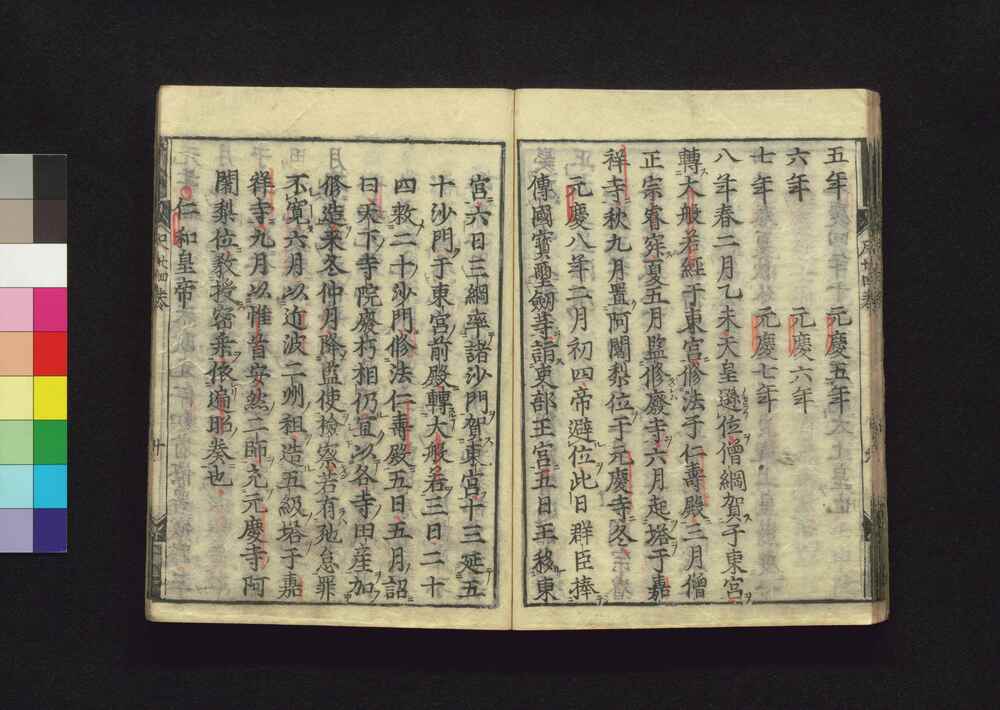 五年　元慶五年
六年　元慶六年
七年　元慶七年
八年春二月乙未天皇遜位僧綱賀于東宮
轉大般若經于東宮修法于仁壽殿三月僧
正宗睿寂夏五月監修廢寺六月起塔于嘉
祥寺秋九月置阿闍梨位于元慶寺冬
元慶八年二月初四帝避位此日群臣捧
傳國寶璽劔等詣吏部王宮五日王移東
宮六日三綱率諸沙門賀東宮十三延五
十沙門于東宮前殿轉大般若三日二十
四敷二十沙門修法仁壽殿五日五月詔
曰天下寺院廢朽相仍宜以各寺田産加
修造來冬仲月降監使檢察若有弛怠罪
不寛六月以近波二州租造五級塔于嘉
祥寺九月以惟首安然二師充元慶寺阿
闍梨位教授密乘依遍昭奏也
仁和皇帝